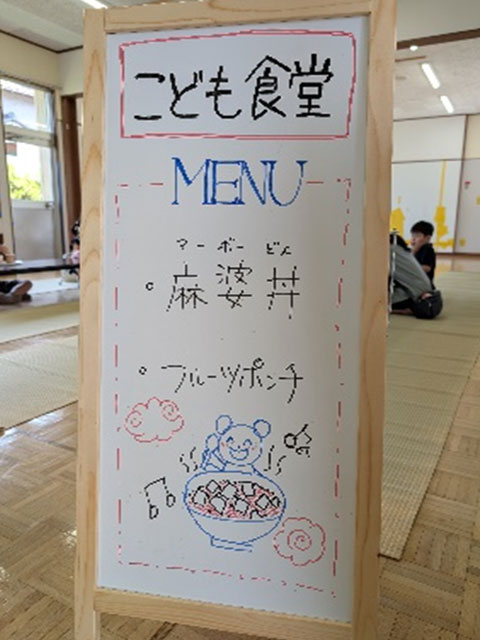 こども食堂
MENU
マーボーどん
○ 麻婆丼
○ フルーツポンチ